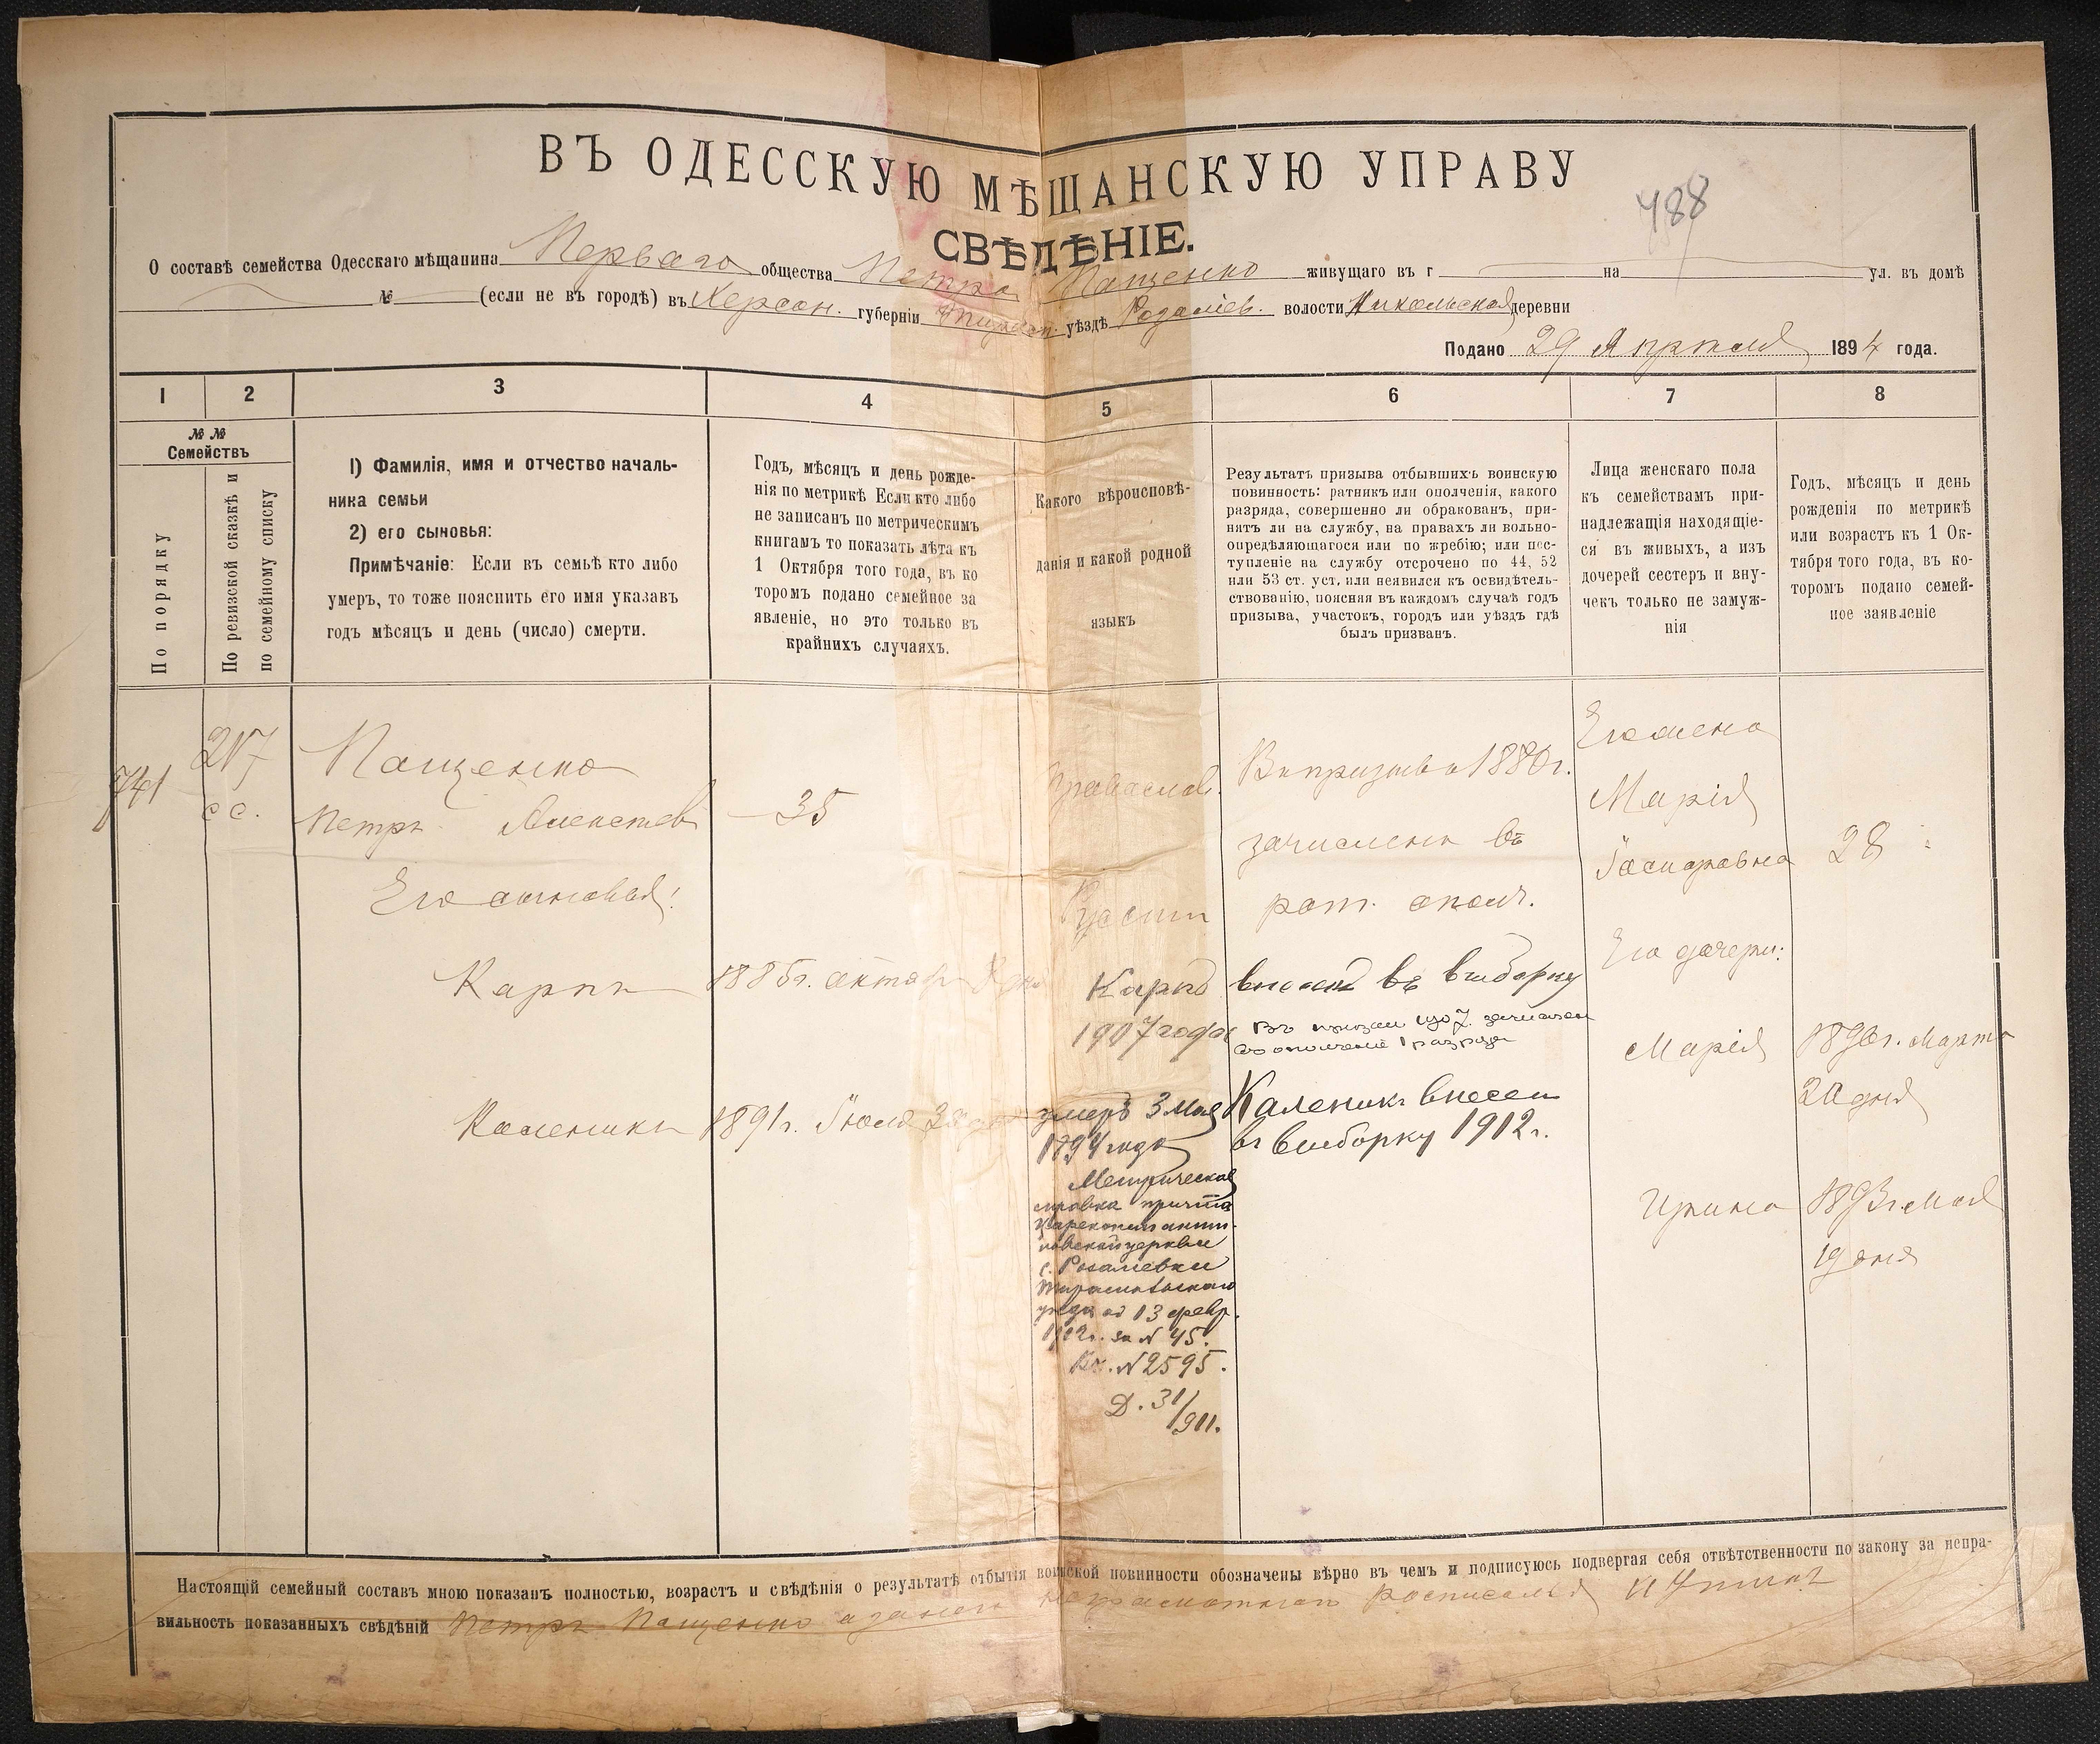 ВЪ ОДЕССКУЮ МѢЩАНСКУЮ УПРАВУ
488
СВѢДѢНІЕ.
О составѣ семейства Одесскаго мѣщанина Перваго общества Петра Пащенко живущаго въ г на ул. въ домѣ
№ (если не въ городѣ) въ Херсон. губерніи уѣздѣ волости Никольской деревни
Подано 29 Апреля 1894 года.
1 2 3 4 5 6 7 8
№ №
Семействъ
По порядку
По ревизской сказкѣ и
по семейному списку
1) Фамилія, имя и отчество началь-
ника семьи
2) его сыновья:
Примѣчаніе: Если въ семьѣ кто либо
умеръ, то тоже пояснить его имя указавъ
годъ мѣсяцъ и день (число) смерти.
Годъ, мѣсяцъ и день рожде-
нія по метрикѣ Если кто либо
не записанъ по метрическимъ
книгамъ то показать лѣта къ
1 Октября того года, въ ко
торомъ подано семейное за
явленіе, но это только въ
крайнихъ случаяхъ.
Какого вѣроисповѣ-
данія и какой родной
языкъ
Результатъ призыва отбывшихъ воинскую
повинность: ратникъ или ополченія, какого
разряда, совершенно ли обракованъ, при-
нятъ ли на службу, на правахъ ли вольно-
опредѣляющагося или по жребію; или пос-
тупленіе на службу отсрочено по 44, 52
или 53 ст. уст. или неявился къ освидѣтель-
ствованію, поясняя въ каждомъ случаѣ годъ
призыва, участокъ, городъ или уѣздъ гдѣ
былъ призванъ.
Лица женскаго пола
къ семействамъ при-
надлежащія находящіе-
ся въ живыхъ, а изъ
дочерей сестеръ и вну-
чекъ только не замуж-
нія
Годъ, мѣсяцъ и день
рожденія по метрикѣ
или возрастъ къ 1 Ок-
тября того года, въ ко-
торомъ подано семей-
ное заявленіе
741
217
с с.
Пащенко
Петръ Алексѣев
35
Православ.
Русскій
Въ призывъ 1880 г.
зачисленъ въ
рат. опол.
Его жена
Марія
Гаспаровна
28
Его сыновья:
Карпъ
1885 г. октяб
Карпъ
1907 года
внесен въ выборку
Въ призыв 1907 зачислен
въ ополченіе 1 разряда
Его дочери:
Марія
1890 г. Марта
20 дня
Каленикъ
1891 г. Іюля
умеръ 3 Мая
1894 года
Каленикъ внесен
въ выборку 1912 г.
Метрическая
справка причта
церкви
с. Розаліевки
Тираспольскаго
уѣзда от 13 февр.
за № 45.
Вх. № 2595.
Д. 31/911.
Ирина
1893 г. Мая
19 дня
Настоящій семейный составъ мною показанъ полностью, возрастъ и свѣдѣнія о результатѣ отбытія воинской повинности обозначены вѣрно въ чемъ и подписуюсь подвергая себя отвѣтственности по закону за непра-
вильность показанныхъ свѣдѣній Петръ Пащенко а за него неграмотнаго росписался